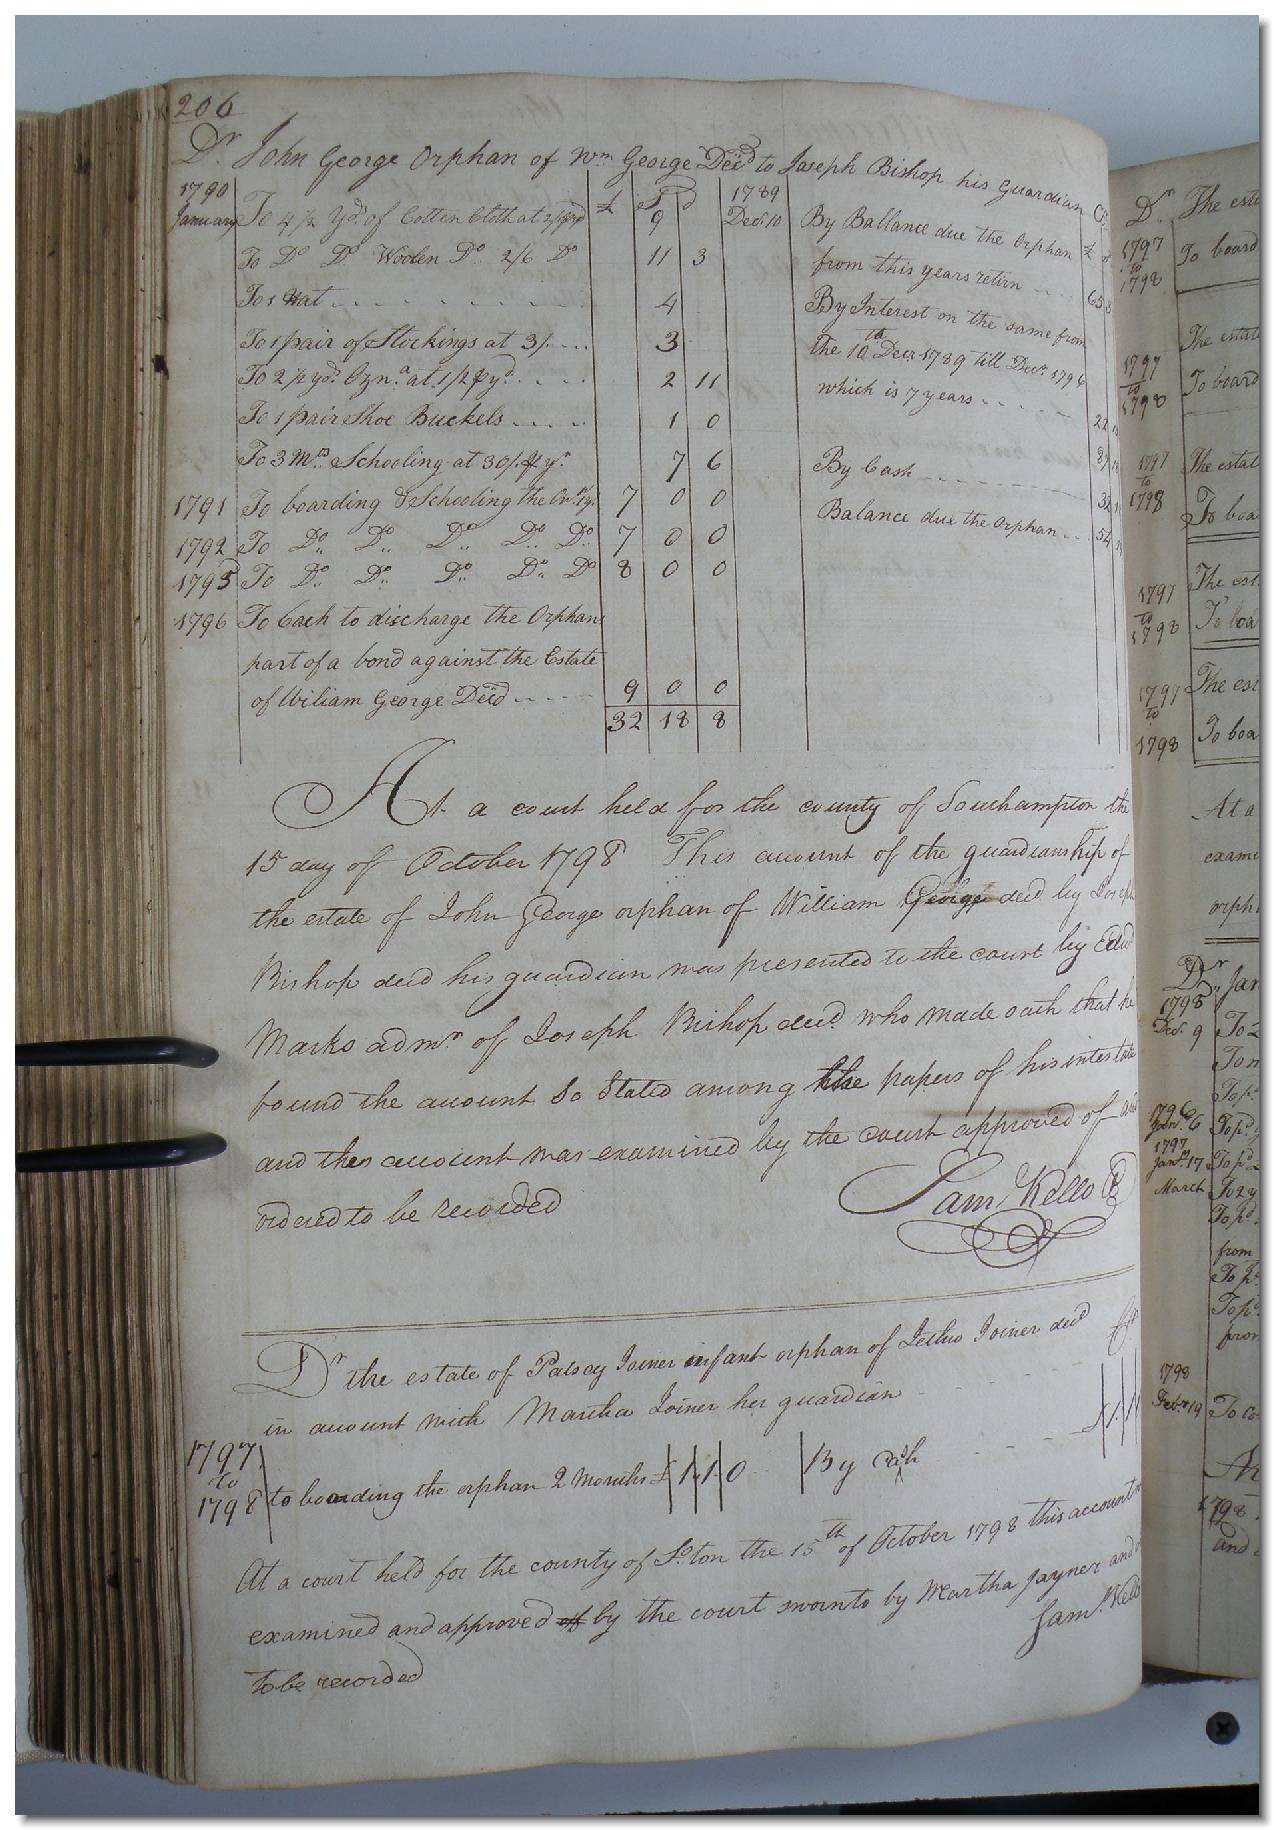 206
Dr John George Orphan of Wm George Decd to Joseph Bishop his Guardian Cr
1790 £ S d 1789
January To 4 1/2 Yds of Cotten Cloth at 2/ 9 Decr 10 By Ballance due the Orphan £
To Do Do Woolen Do 2/6 Do 11 3 from this years return 65
To 1 Hat 4 By Interest on the same from
To 1 pair of Stockings at 3/ 3 the 10th Decr 1789 till Decr 1796
To 2 1/2 yds Ozna at 1/2 pr yd 2 11 which is 7 years 22
To 1 pair Shoe Buckels 1 0
To 3 Mos Schooling at 30/ pr yr 7 6 By Cash
1791 To boarding & Schooling the 7 0 0 32
Balance due the Orphan 54
1792 To Do Do Do Do Do 7 0 0
1795 To Do Do Do Do Do 8 0 0
1796 To Cash to discharge the Orphans
part of a bond against the Estate
of William George Decd 9 0 0
32 18 8
At a court held for the county of Southampton the
15 day of October 1798 This account of the guardianship of
the estate of John George orphan of William George decd by Joseph
Bishop decd his guardian was presented to the court by Edwd
Marks admr of Joseph Bishop decd who made oath that he
found the account so stated among the papers of his intestate
and this account was examined by the court approved of and
ordered to be recorded
Sam Kello
Dr the estate of Patsey Joiner infant orphan of Jethro Joiner decd Cr
in account with Martha Joiner her guardian
1797
to
1798 to boarding the orphan 2 months £ 1 1 0 By cash £ 1 1
At a court held for the county of So.ton the 15th of October 1798 this account
examined and approved of by the court sworn to by Martha Jayner and
Saml Kello
to be recorded
Dr The esta
1797
to
1798
To board
The estat
1797
to
1798
To board
1797
to
1798
The estat
To boa
1797
to
1798
The est
To boa
1797
to
1798
The est
To boa
At a
exami
orph
Dr Jan
1795
Dec. 9 To 2
1796
To pd
1797
Jany 17 To pd
March To 2 y
To pd
from
To pd
To pd
from
1798
Feby 19 To co
1798
and